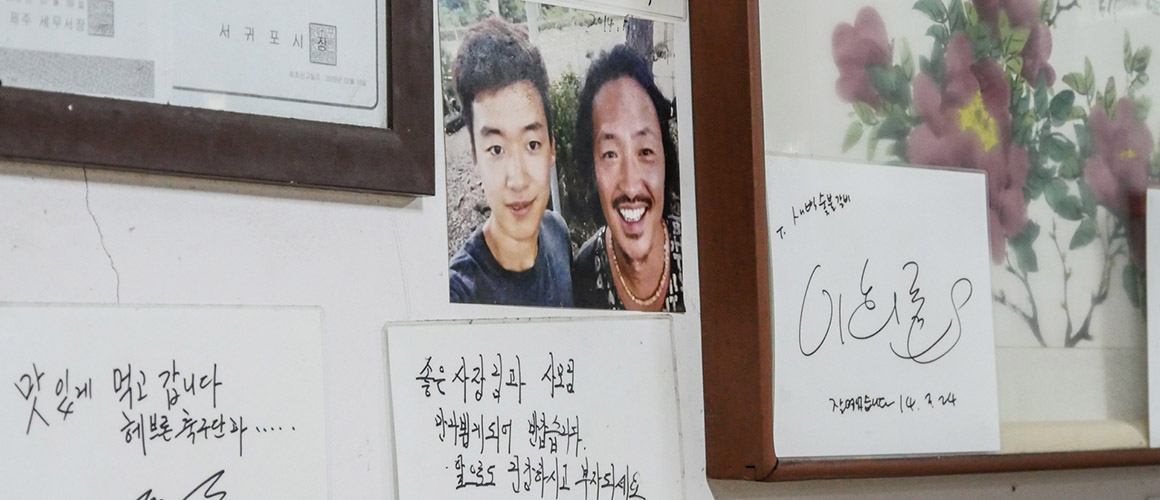 제주 세무서장
서 귀 포 시 장
2014.
맛있게 먹고 갑니다
헤브론 축구단과.....
좋은 사장님과 사모님
만나뵙게되어 반갑습니다.
앞으로도 건강하시고 부자되세요
T. 새벽숯불갈비
잘먹었습니다 14. 3. 24